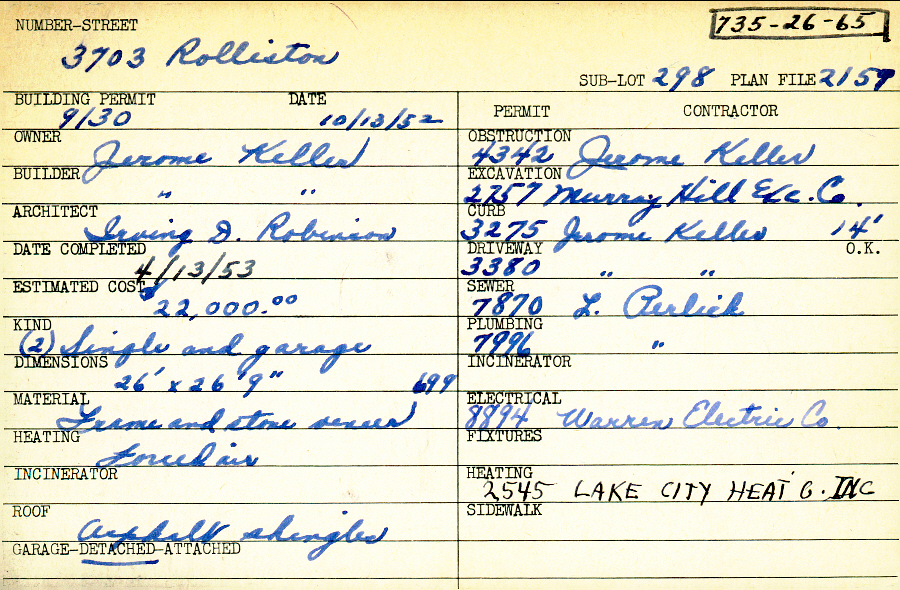 NUMBER-STREET
735-26-65
3703 Rolliston
SUB-LOT 298 PLAN FILE 2159
BUILDING PERMIT DATE
9130 10/13/52
OWNER
Jerome Keller
BUILDER
" "
ARCHITECT
Irving D. Robinson
DATE COMPLETED
4/13/53
ESTIMATED COST
22,000.00
KIND
(2) Single and garage
DIMENSIONS
26' x 26'9" 699
MATERIAL
Frame and stone veneer
HEATING
Forced air
INCINERATOR
ROOF
Asphalt shingles
GARAGE-DETACHED-ATTACHED
PERMIT CONTRACTOR
OBSTRUCTION
4342 Jerome Keller
EXCAVATION
2757 Murray Hill Exc. Co.
CURB
3275 Jerome Keller 14'
DRIVEWAY O.K.
3380 " "
SEWER
7870 L. Perlick
PLUMBING
7996 "
INCINERATOR
ELECTRICAL
8894 Warren Electric Co.
FIXTURES
HEATING
2545 LAKE CITY HEAT'G. INC
SIDEWALK